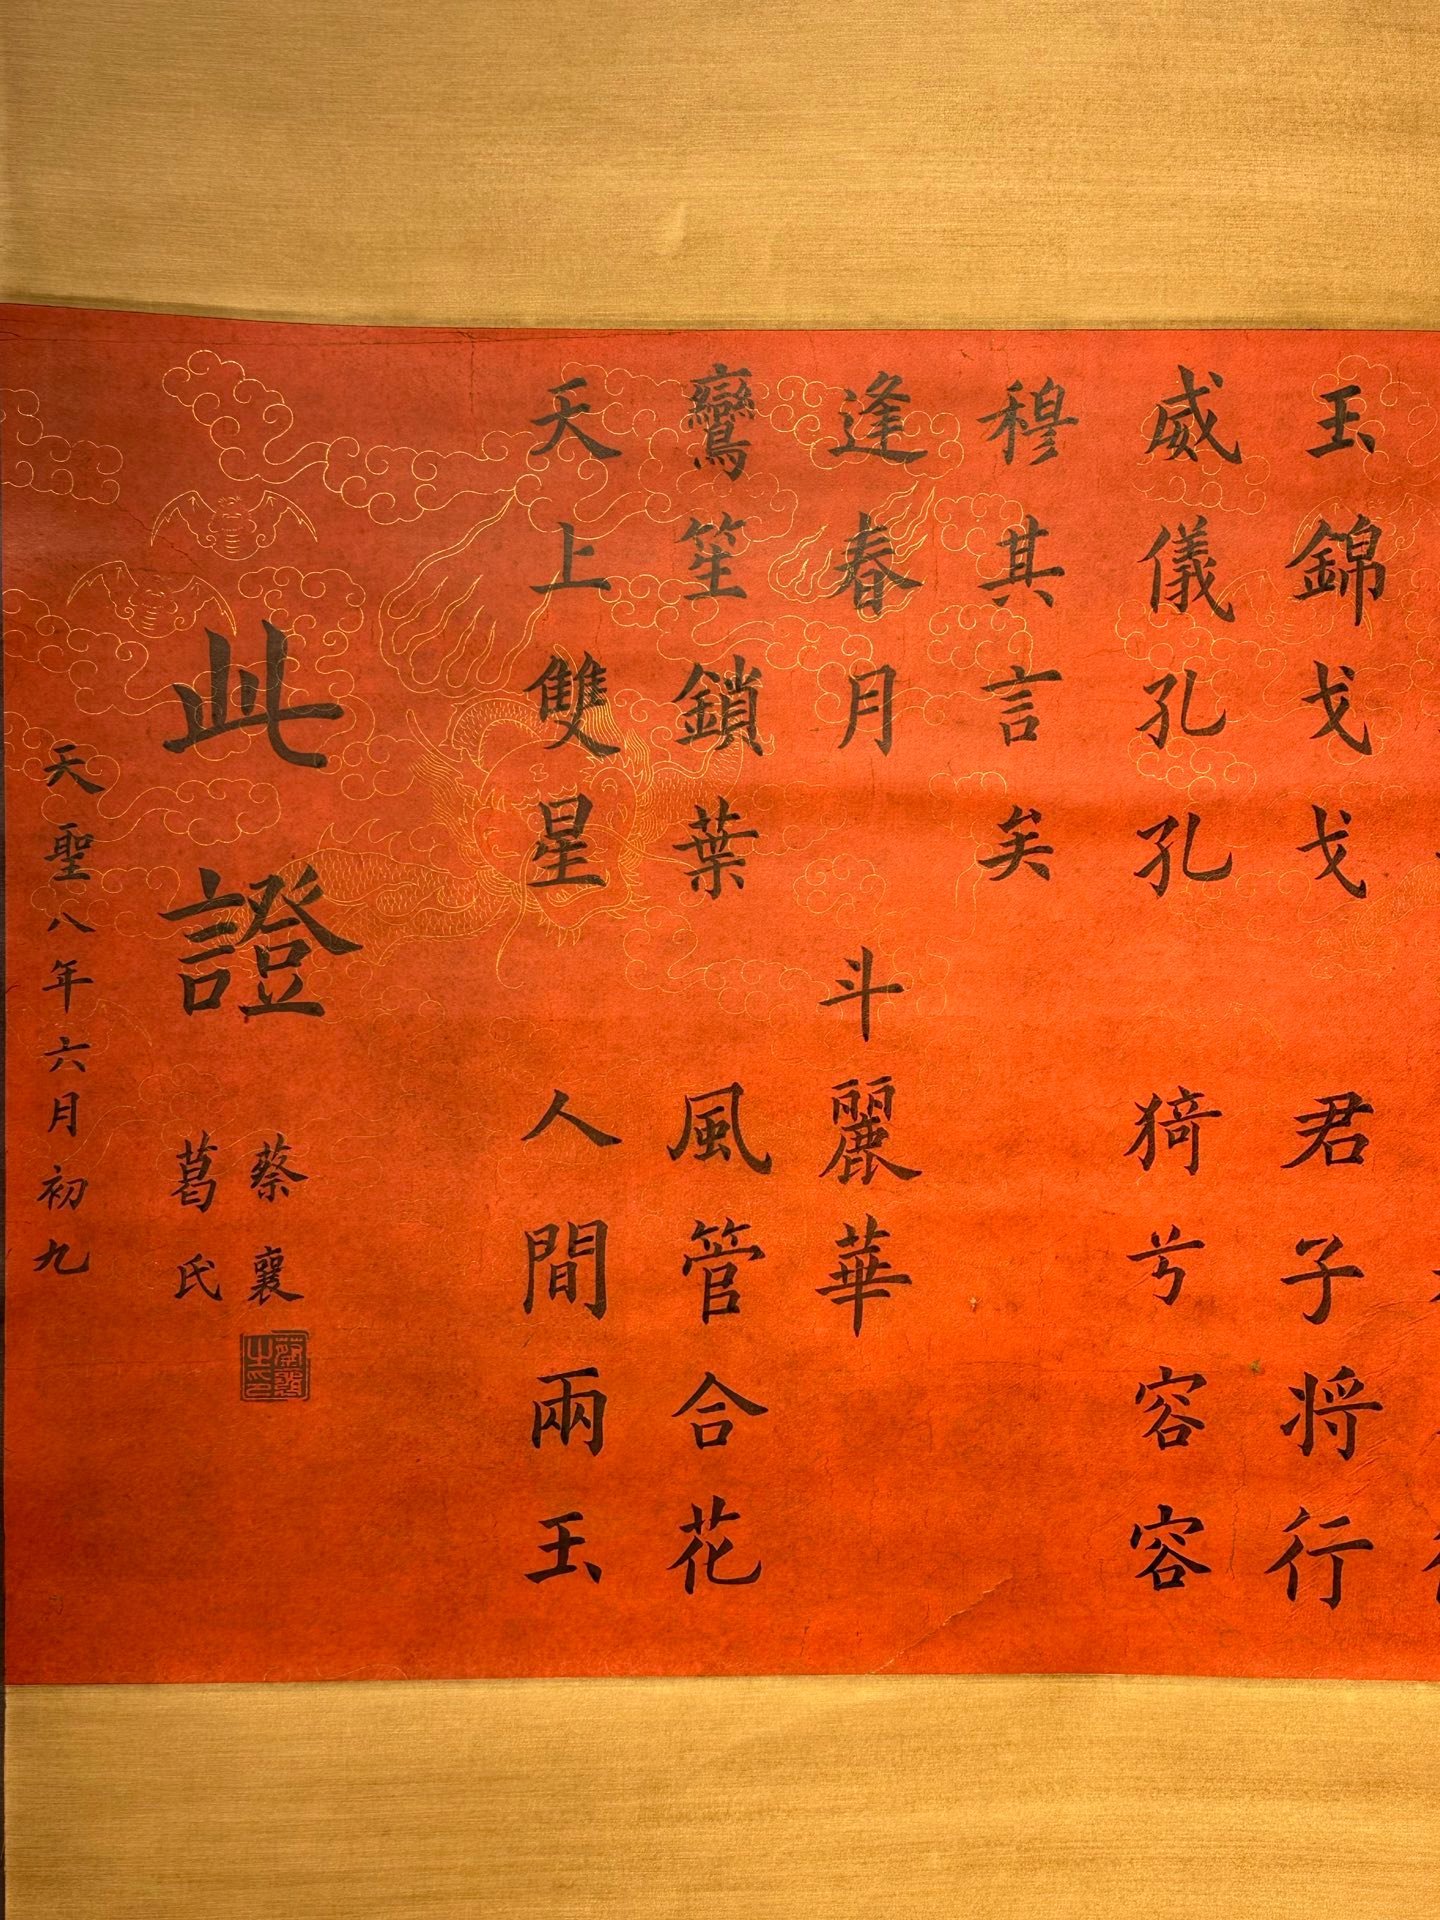 玉錦戈戈 君子将行
威儀孔孔 猗兮容容
穆其言矣
逢春月 斗麗華
鸞笙鎖葉 風管合花
天上雙星 人間兩玉
此證
蔡襄
葛氏
天聖八年六月初九